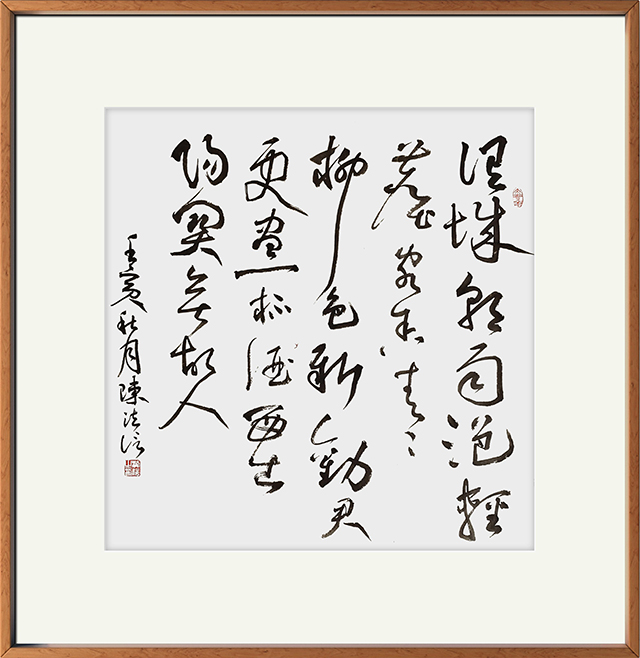 渭城朝雨浥輕
塵客舍青々
柳色新勸君
更盡一杯酒西出
陽關無故人
壬寅秋月陳法